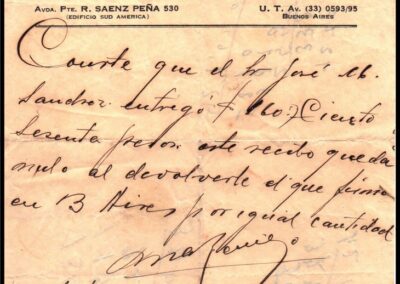 AVDA. PTE. R. SAENZ PEÑA 530
(EDIFICIO SUD AMERICA)
U. T. AV. (33) 0593/95
BUENOS AIRES
Conste que el Sr José M.
entregó $ 160.- Ciento
Sesenta pesos este recibo queda
nulo al devolverle el que firmó
en B Aires por igual cantidad